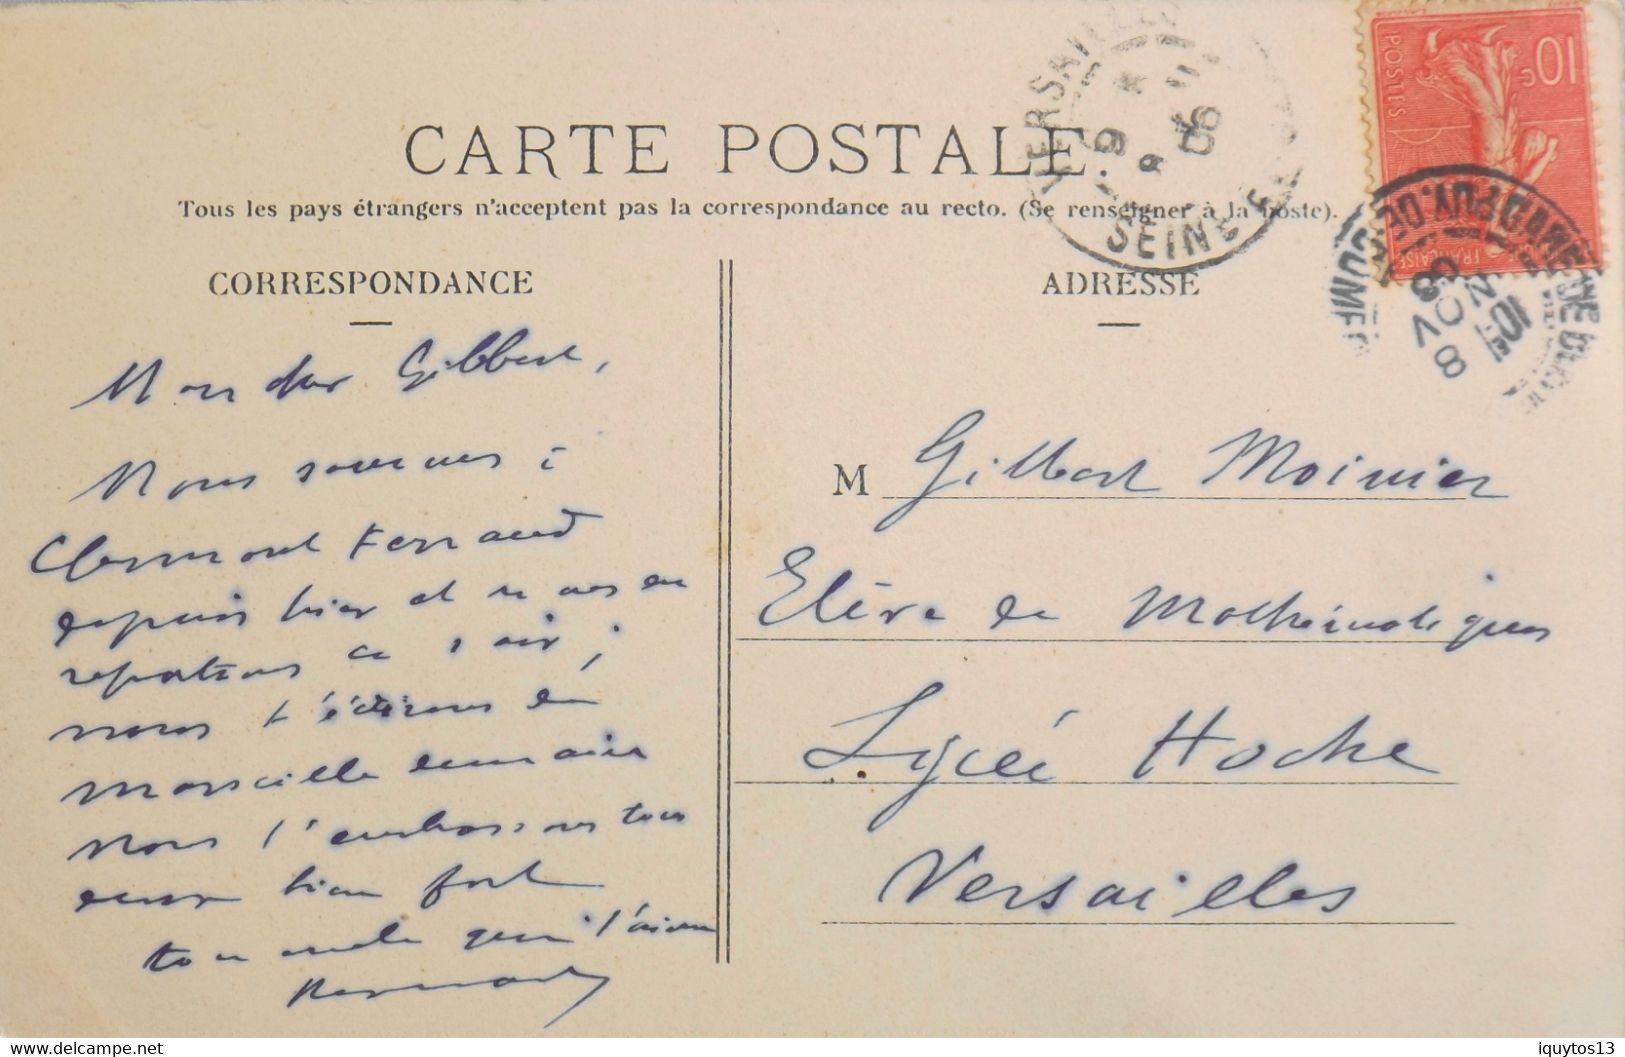 CARTE POSTALE
Tous les pays étrangers n'acceptent pas la correspondance au recto. (Se renseigner à la poste).
CORRESPONDANCE
Mon cher Gilbert,
Nous sommes à
Clermont Ferrand
depuis hier et nous en
repartons ce soir ;
nous t'écrirons de
Marseille demain
Nous t'embrassons tous
deux bien fort
ton oncle qui t'aime
ADRESSE
M Gilbert Moinier
Elève de Mathématiques
Lycée Hoche
Versailles
10c
POSTES
FRANÇAISE
VERSAILLES
SEINE
PUY-DE
Delcampe.net
iquytos13